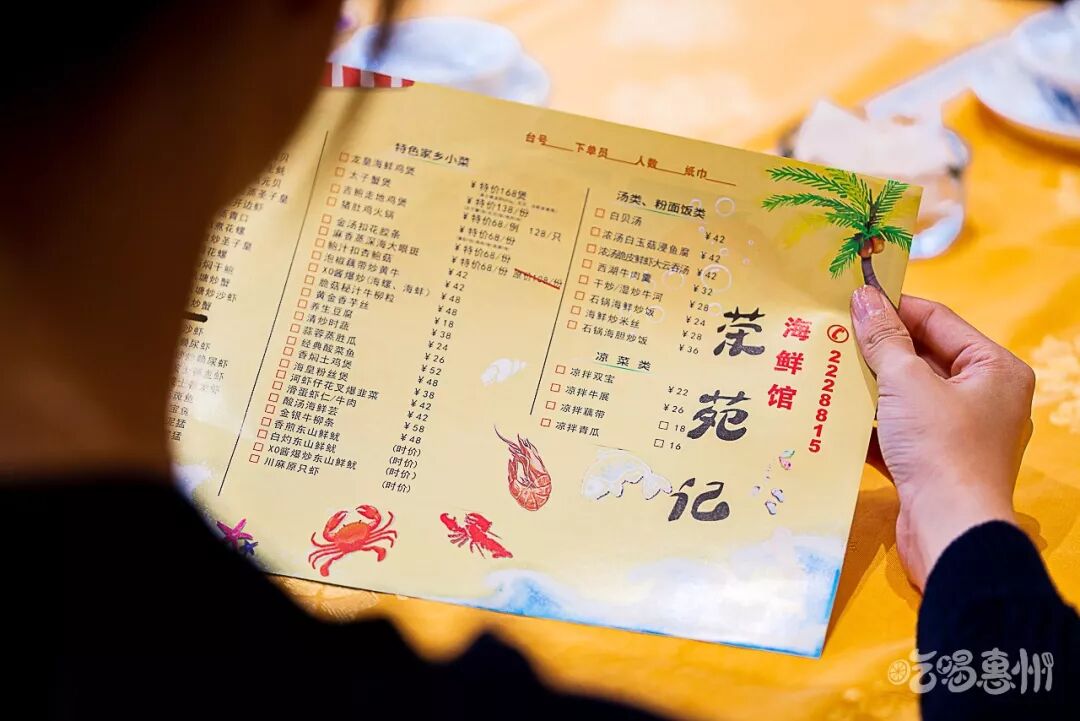 台号 下单员 人数 纸巾
特色家乡小菜
龙皇海鲜鸡煲 ¥特价168煲
太子蟹煲 ¥特价138/份
吉鲍走地鸡煲 ¥特价68/例 128/只
猪肚鸡火锅 ¥特价68/份
金汤扣花胶条 ¥特价68/份
麻香蒸深海大眼斑 ¥特价68/份
鲍汁扣杏鲍菇 ¥42
泡椒藕带炒黄牛 ¥42
XO酱爆炒(海螺、海蚌) ¥48
脆菇秘汁牛柳粒 ¥48
黄金香芋丝 ¥18
养生豆腐 ¥38
清炒时蔬 ¥24
蒜蓉蒸胜瓜 ¥26
经典酸菜鱼 ¥52
香焖土鸡煲 ¥48
海皇粉丝煲 ¥38
河虾仔花叉爆韭菜 ¥42
滑蛋虾仁/牛肉 ¥42
酸汤海鲜芸 ¥58
金银牛柳条 ¥48
香煎东山鲜鱿 (时价)
白灼东山鲜鱿 (时价)
XO酱爆炒东山鲜鱿 (时价)
川麻原只虾 (时价)
汤类、粉面饭类
白贝汤 ¥42
浓汤白玉菇浸鱼腐 ¥42
浓汤脆皮鲜虾大云吞汤 ¥42
西湖牛肉羹 ¥32
干炒/湿炒牛河 ¥28
石锅海鲜炒饭 ¥24
海鲜炒米丝 ¥28
石锅海胆炒饭 ¥36
凉菜类
凉拌双宝 ¥22
凉拌牛展 ¥26
凉拌藕带 18
凉拌青瓜 16
荣苑记
海鲜馆
2228815
吃喝惠州